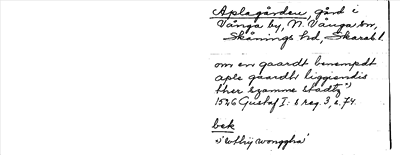 Aplagården, gård i
Vånga by, N. Vånga sn,
Skånings hd, Skarab. l.
om en gaardt benempdt
aple gaardt liggiendis
ther samme stadtz ⁾
1546 Gustaf I:s reg. 3, s. 74.
bek
⁾ 'wthij wonggha'